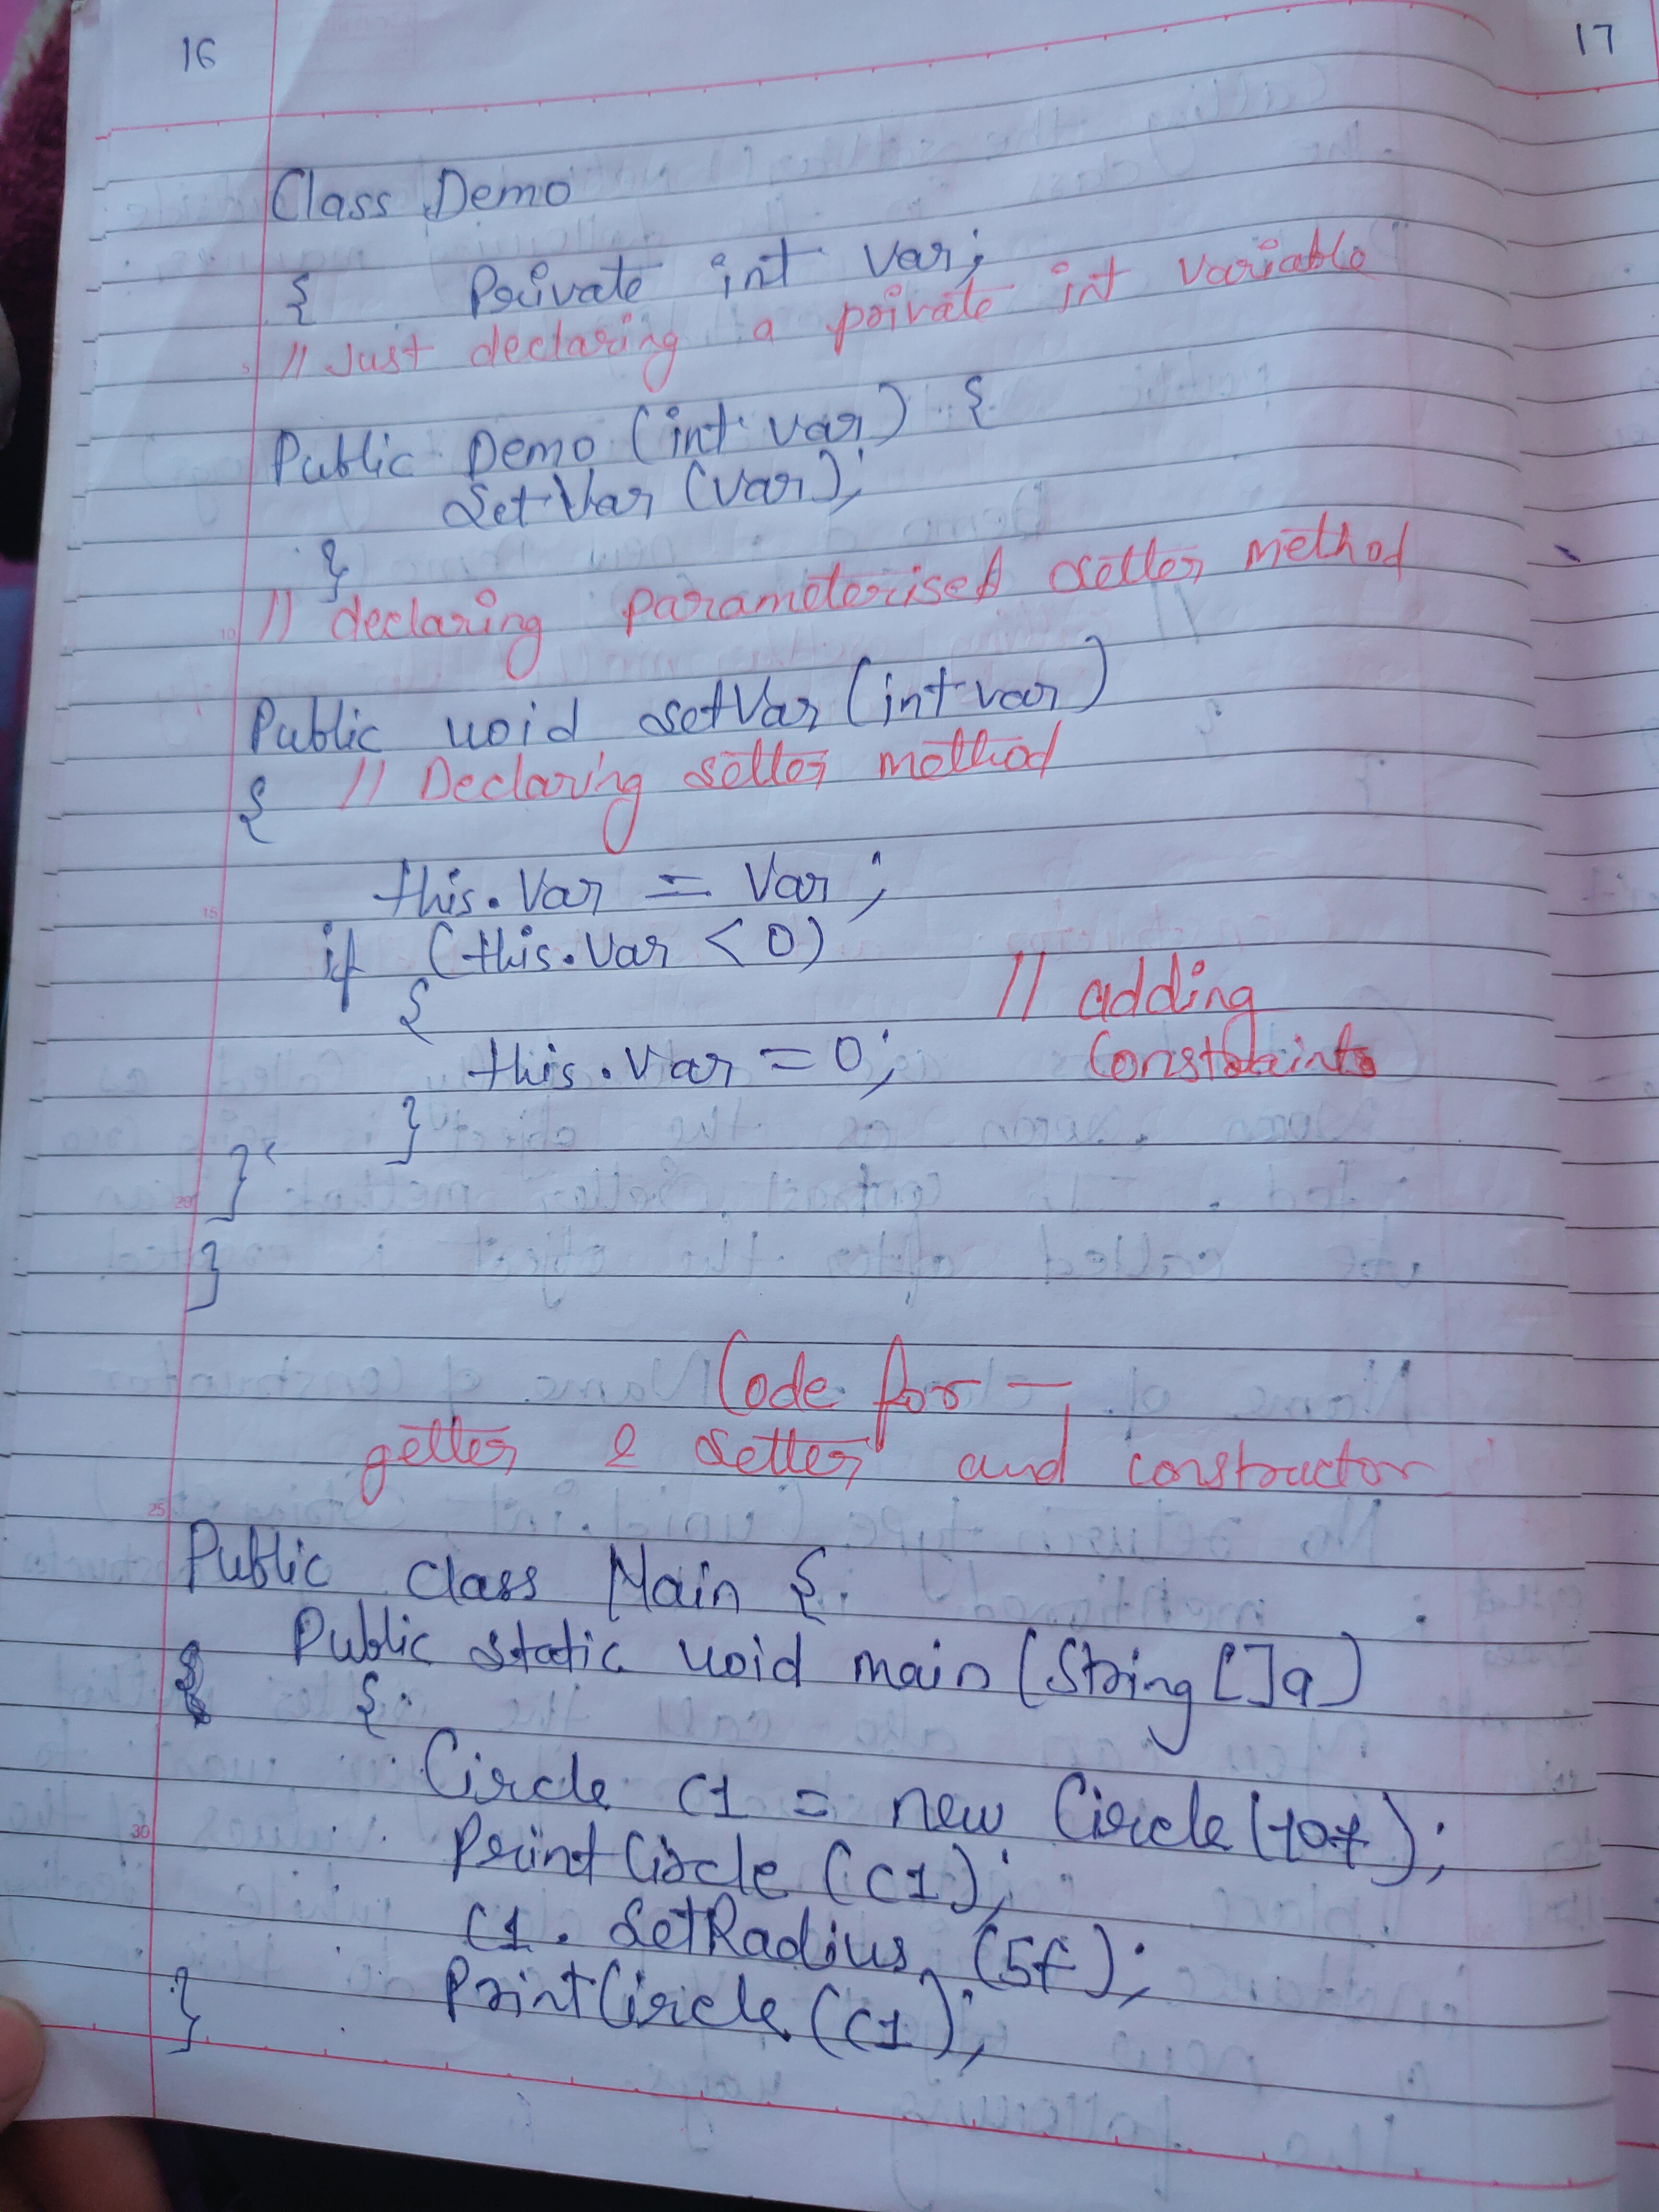 16
17
Class Demo
{ Private int var;
// Just declaring a private int variable
Public Demo (int var) {
SetVar (var);
}
// declaring parameterised setter method
Public void setVar (int var)
{ // Declaring setter method
this.Var = Var;
if (this.Var < 0)
{ // adding
this.Var = 0; Constraints
}
}
}
Code for -
getter & setter and constructor
Public class Main {
Public static void main (String []a)
{
Circle C1 = new Circle( );
Print Circle (C1);
C1. SetRadius (5f);
} PrintCircle (C1);
5
10
15
20
25
30